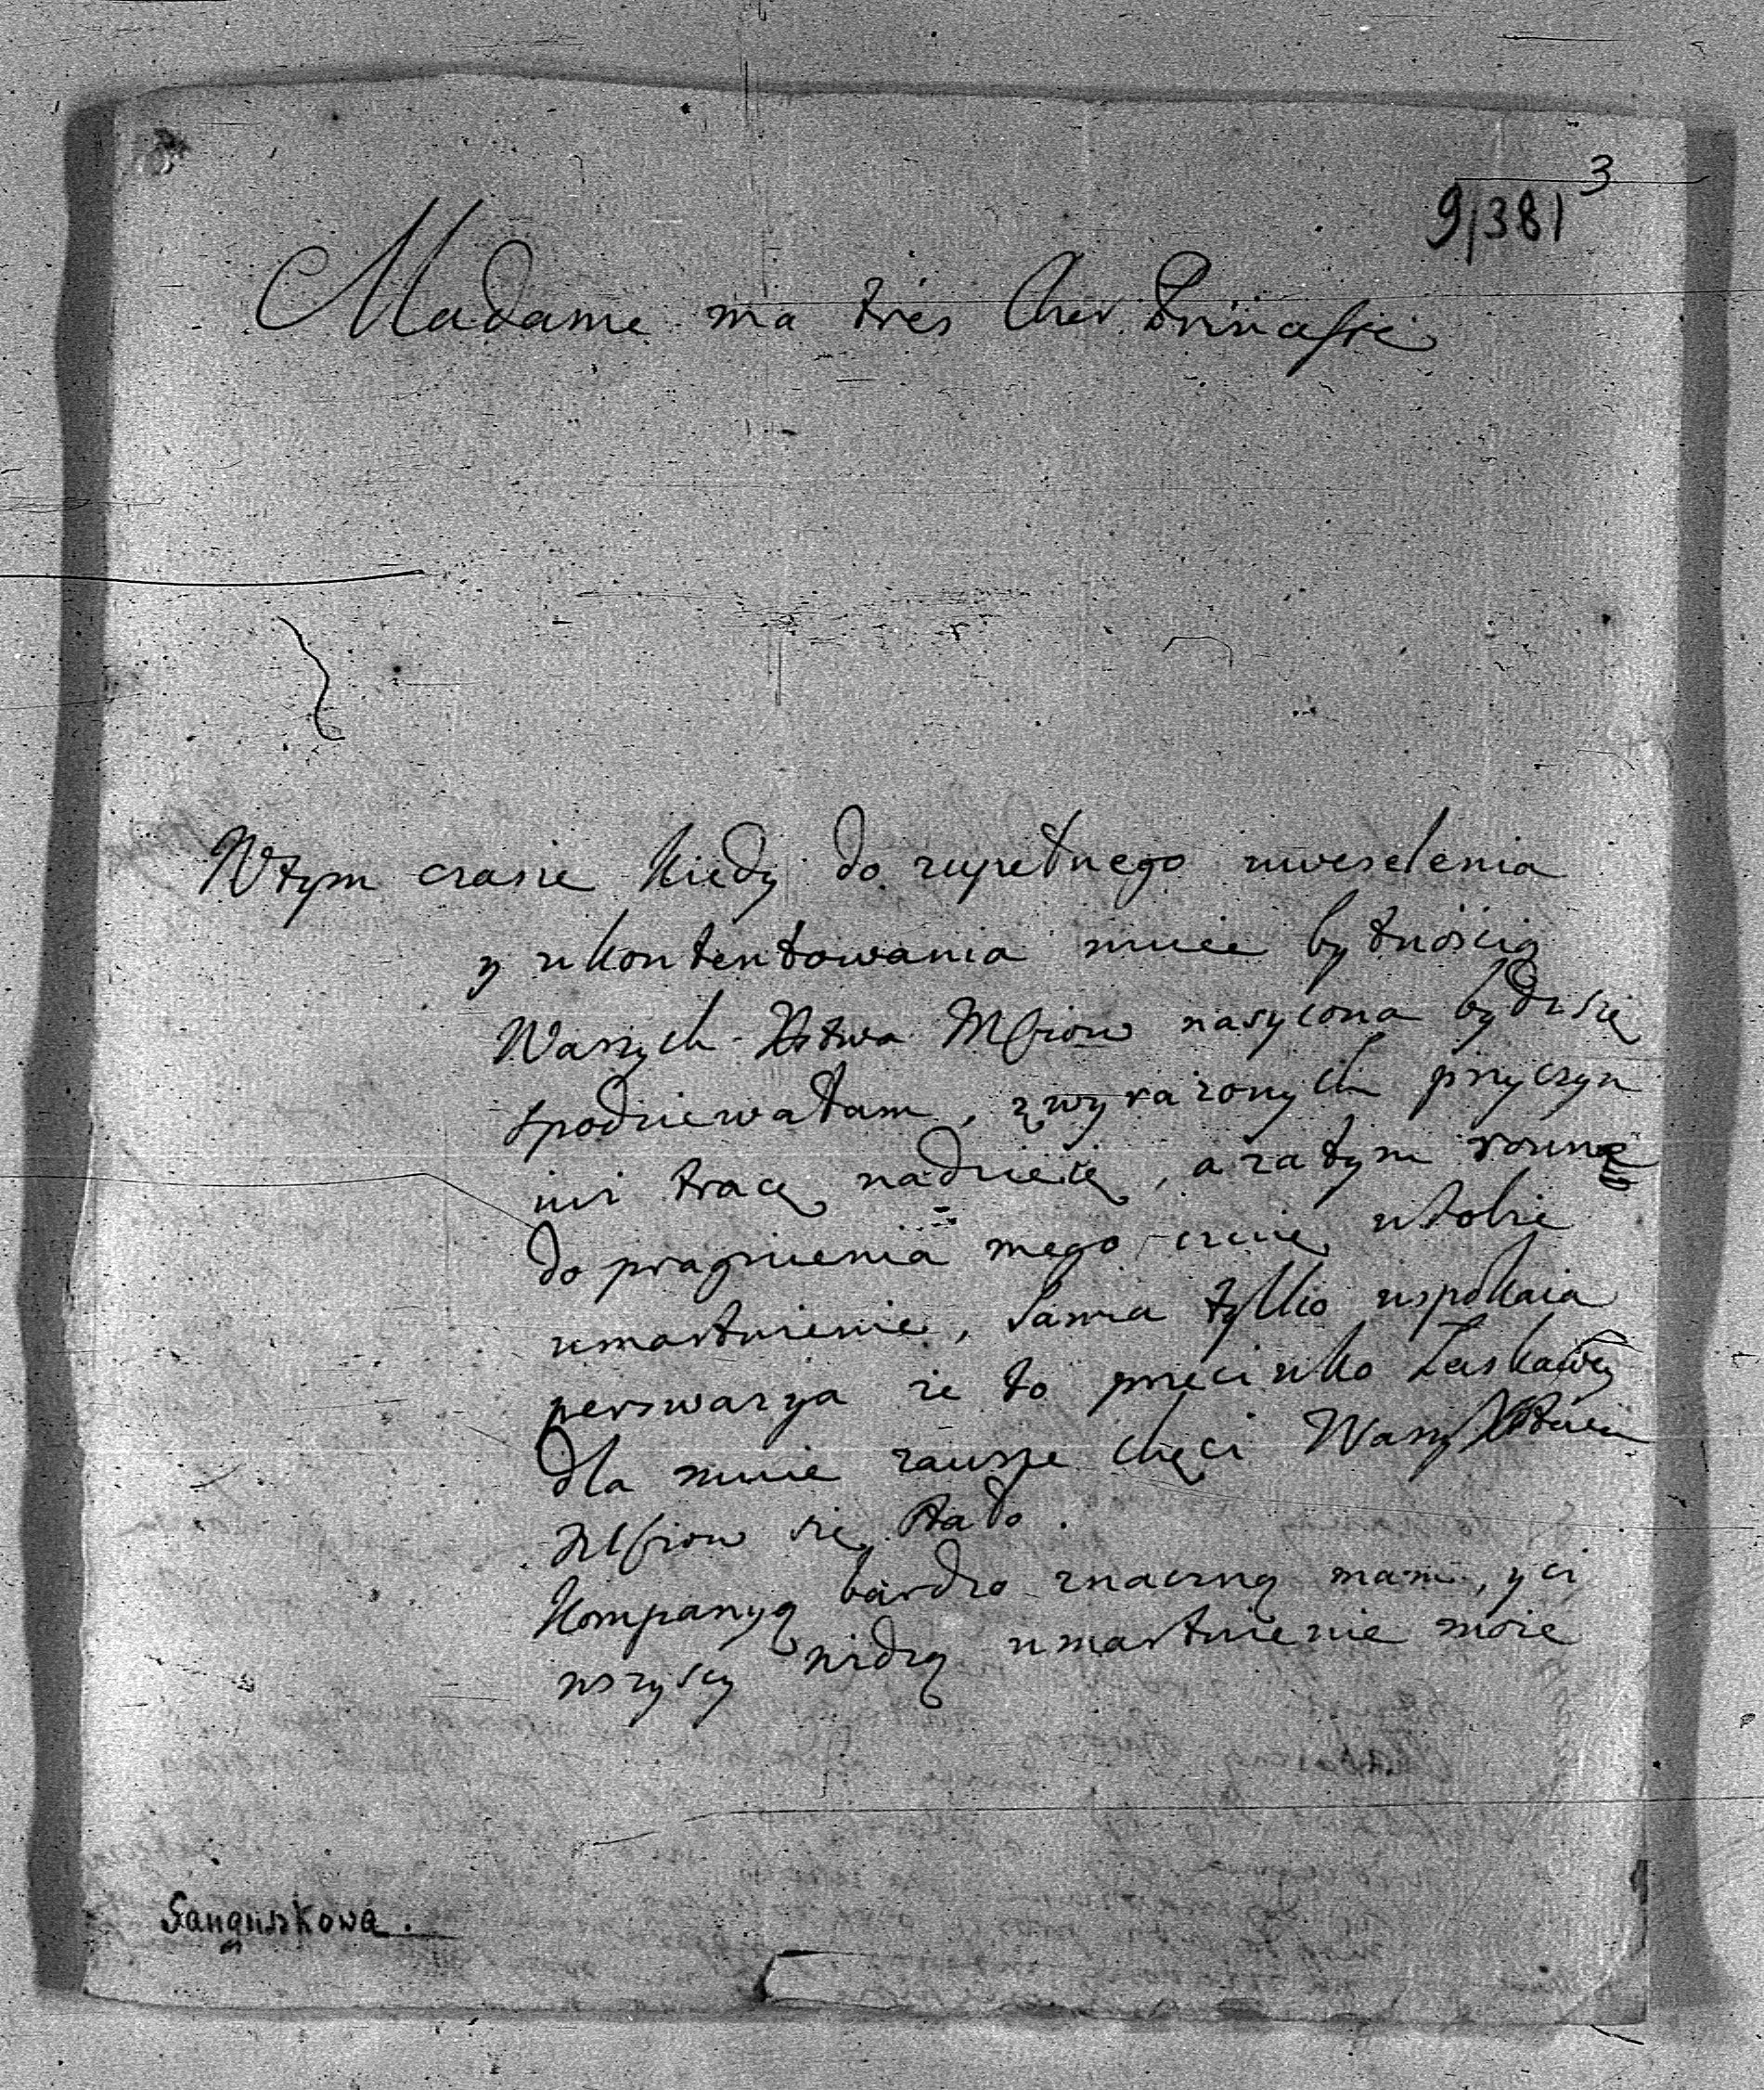 3
9/381
Madame ma trés Cher Princesse
W tym czasie kiedy do zupełnego uweselenia
y ukontentowania mnie bytnoscią
Waszych Xstwa Mściow nasycona bydz się
spodziewałam, z wyrazonych przyczyn
iuz tracę nadzieię, a zatym rowne
do pragnienia mego czuię w sobie
umartwienie, sama tylko uspokaia
perswazya ze to przeciwko Łaskawey
dla mnie zawsze chęci Waszych Xstwa
Mściow się stało.
Kompanyą bardzo znaczną mam, y ci
wszyscy widzą umartwienie moie
Sanguszkowa.